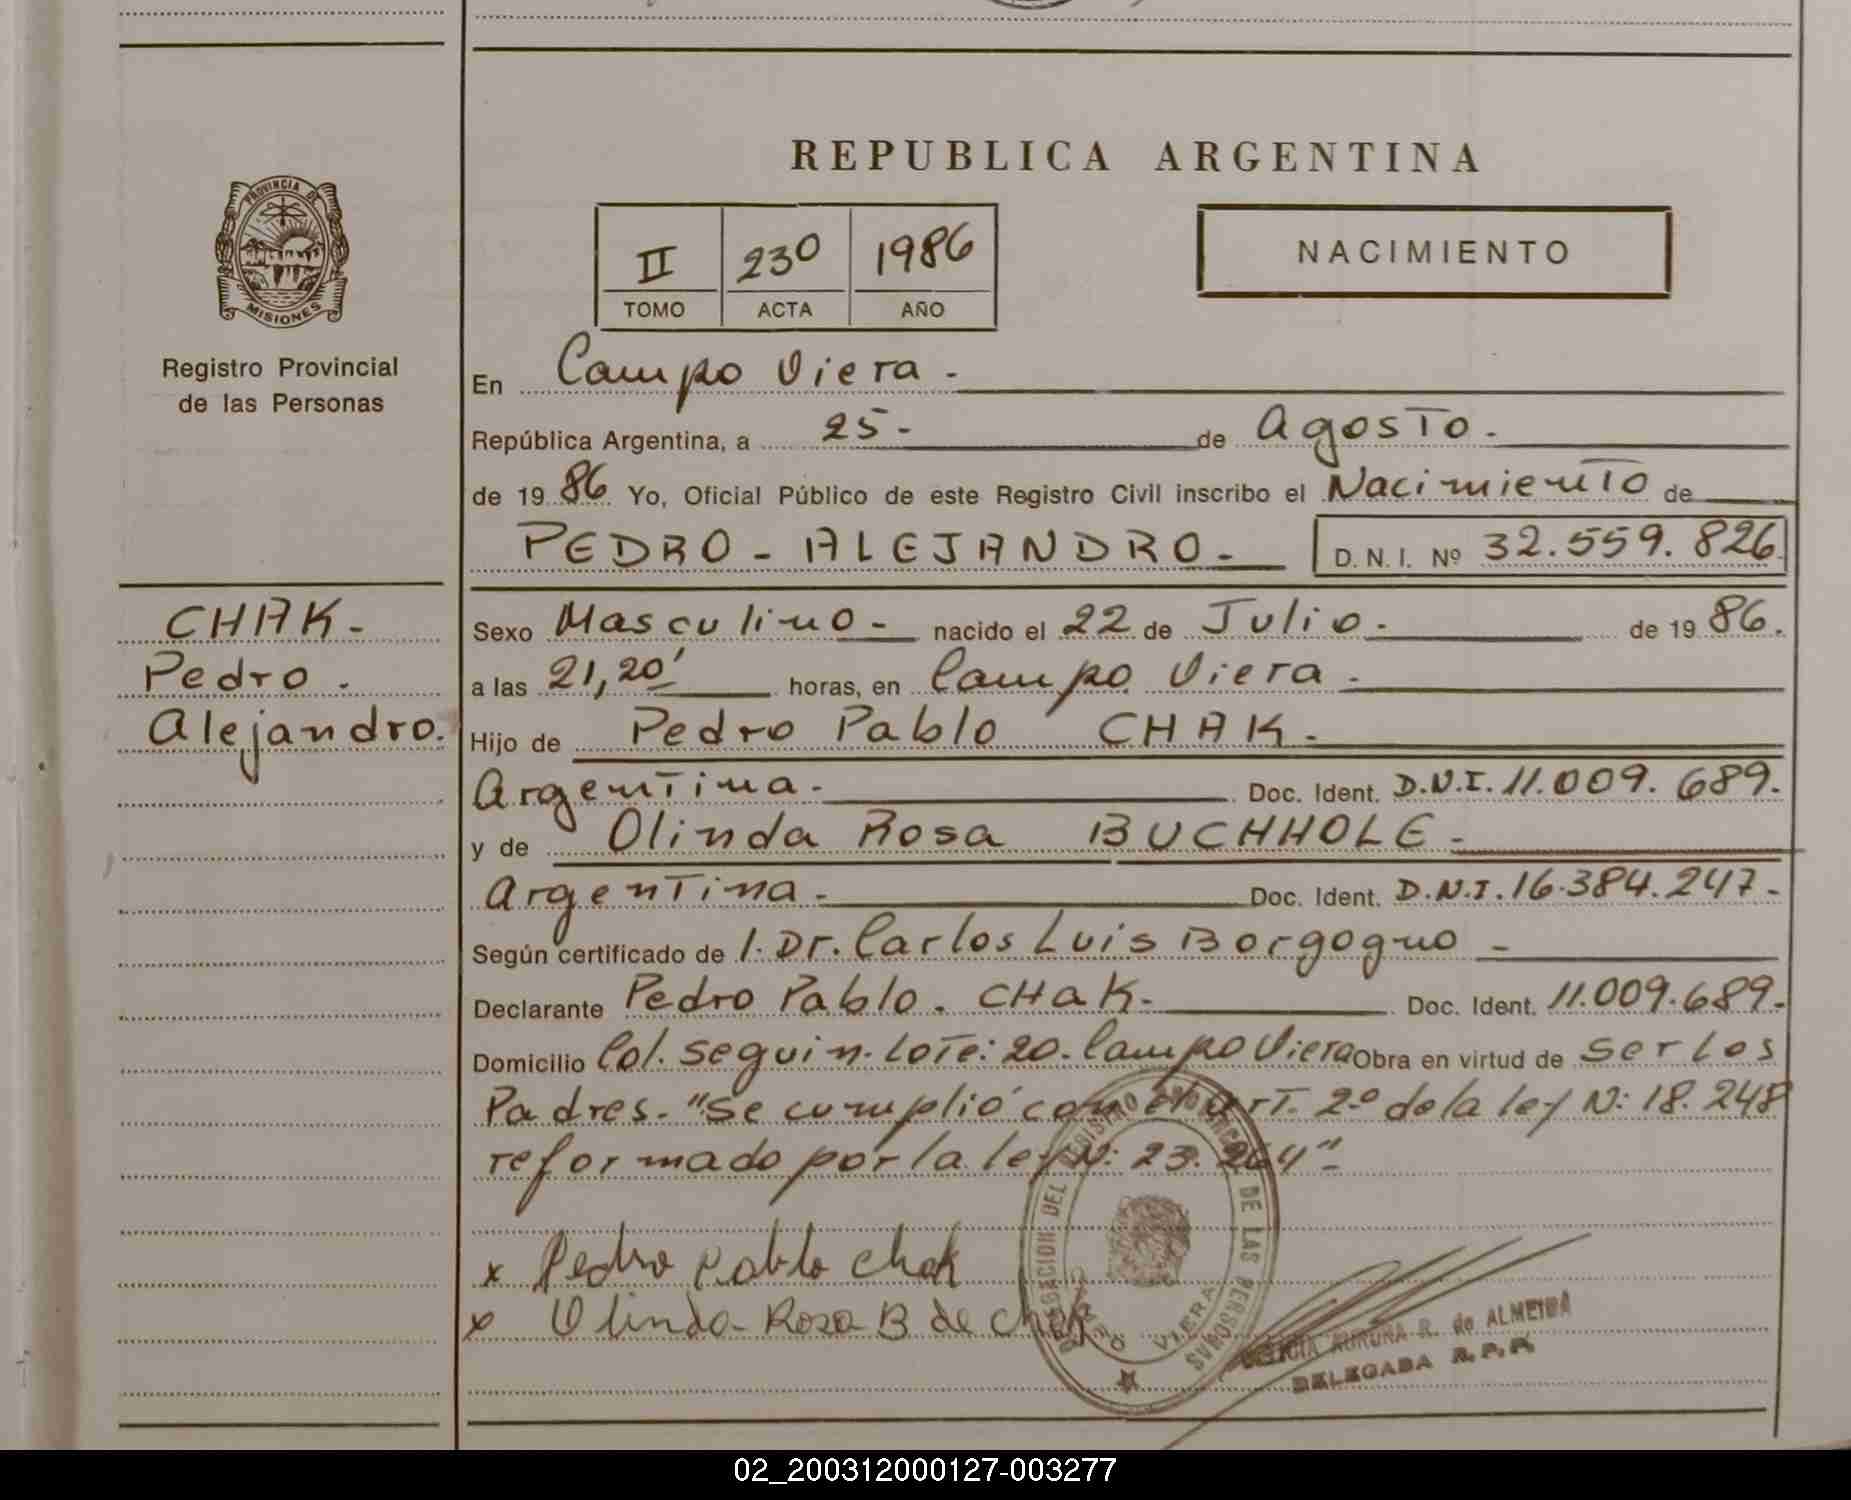 REPUBLICA ARGENTINA
PROVINCIA DE
MISIONES
Registro Provincial
de las Personas
II 230 1986
TOMO ACTA AÑO
NACIMIENTO
En Campo Viera -
República Argentina, a 25 - de Agosto.
de 19 86 Yo, Oficial Público de este Registro Civil inscribo el Nacimiento de
PEDRO - ALEJANDRO -
D. N. I. Nº 32.559.826
CHAK -
Pedro.
Alejandro.
Sexo Masculino - nacido el 22 de Julio. de 19 86.
a las 21,20' horas, en Campo Viera.
Hijo de Pedro Pablo CHAK.
Argentina. Doc. Ident. D.N.I. 11.009.689.
y de Olinda Rosa BUCHHOLE -
Argentina. Doc. Ident. D.N.I. 16.384.247.-
Según certificado de l. Dr. Carlos Luis Borgogno -
Declarante Pedro Pablo. CHAK. Doc. Ident. 11.009.689.
Domicilio Col. Seguin. Lote: 20. Campo Viera Obra en virtud de ser los
Padres. "Se cumplió con el art. 2º de la ley N: 18.248
reformado por la ley N: 23.264"-
x Pedro Pablo Chak
x Olinda Rosa B de Chak
DELEGACION DEL REGISTRO PROVINCIAL DE LAS PERSONAS
CAMPO VIERA
AURORA R. de ALMEIDA
DELEGADA R. P. P.
02_200312000127-003277